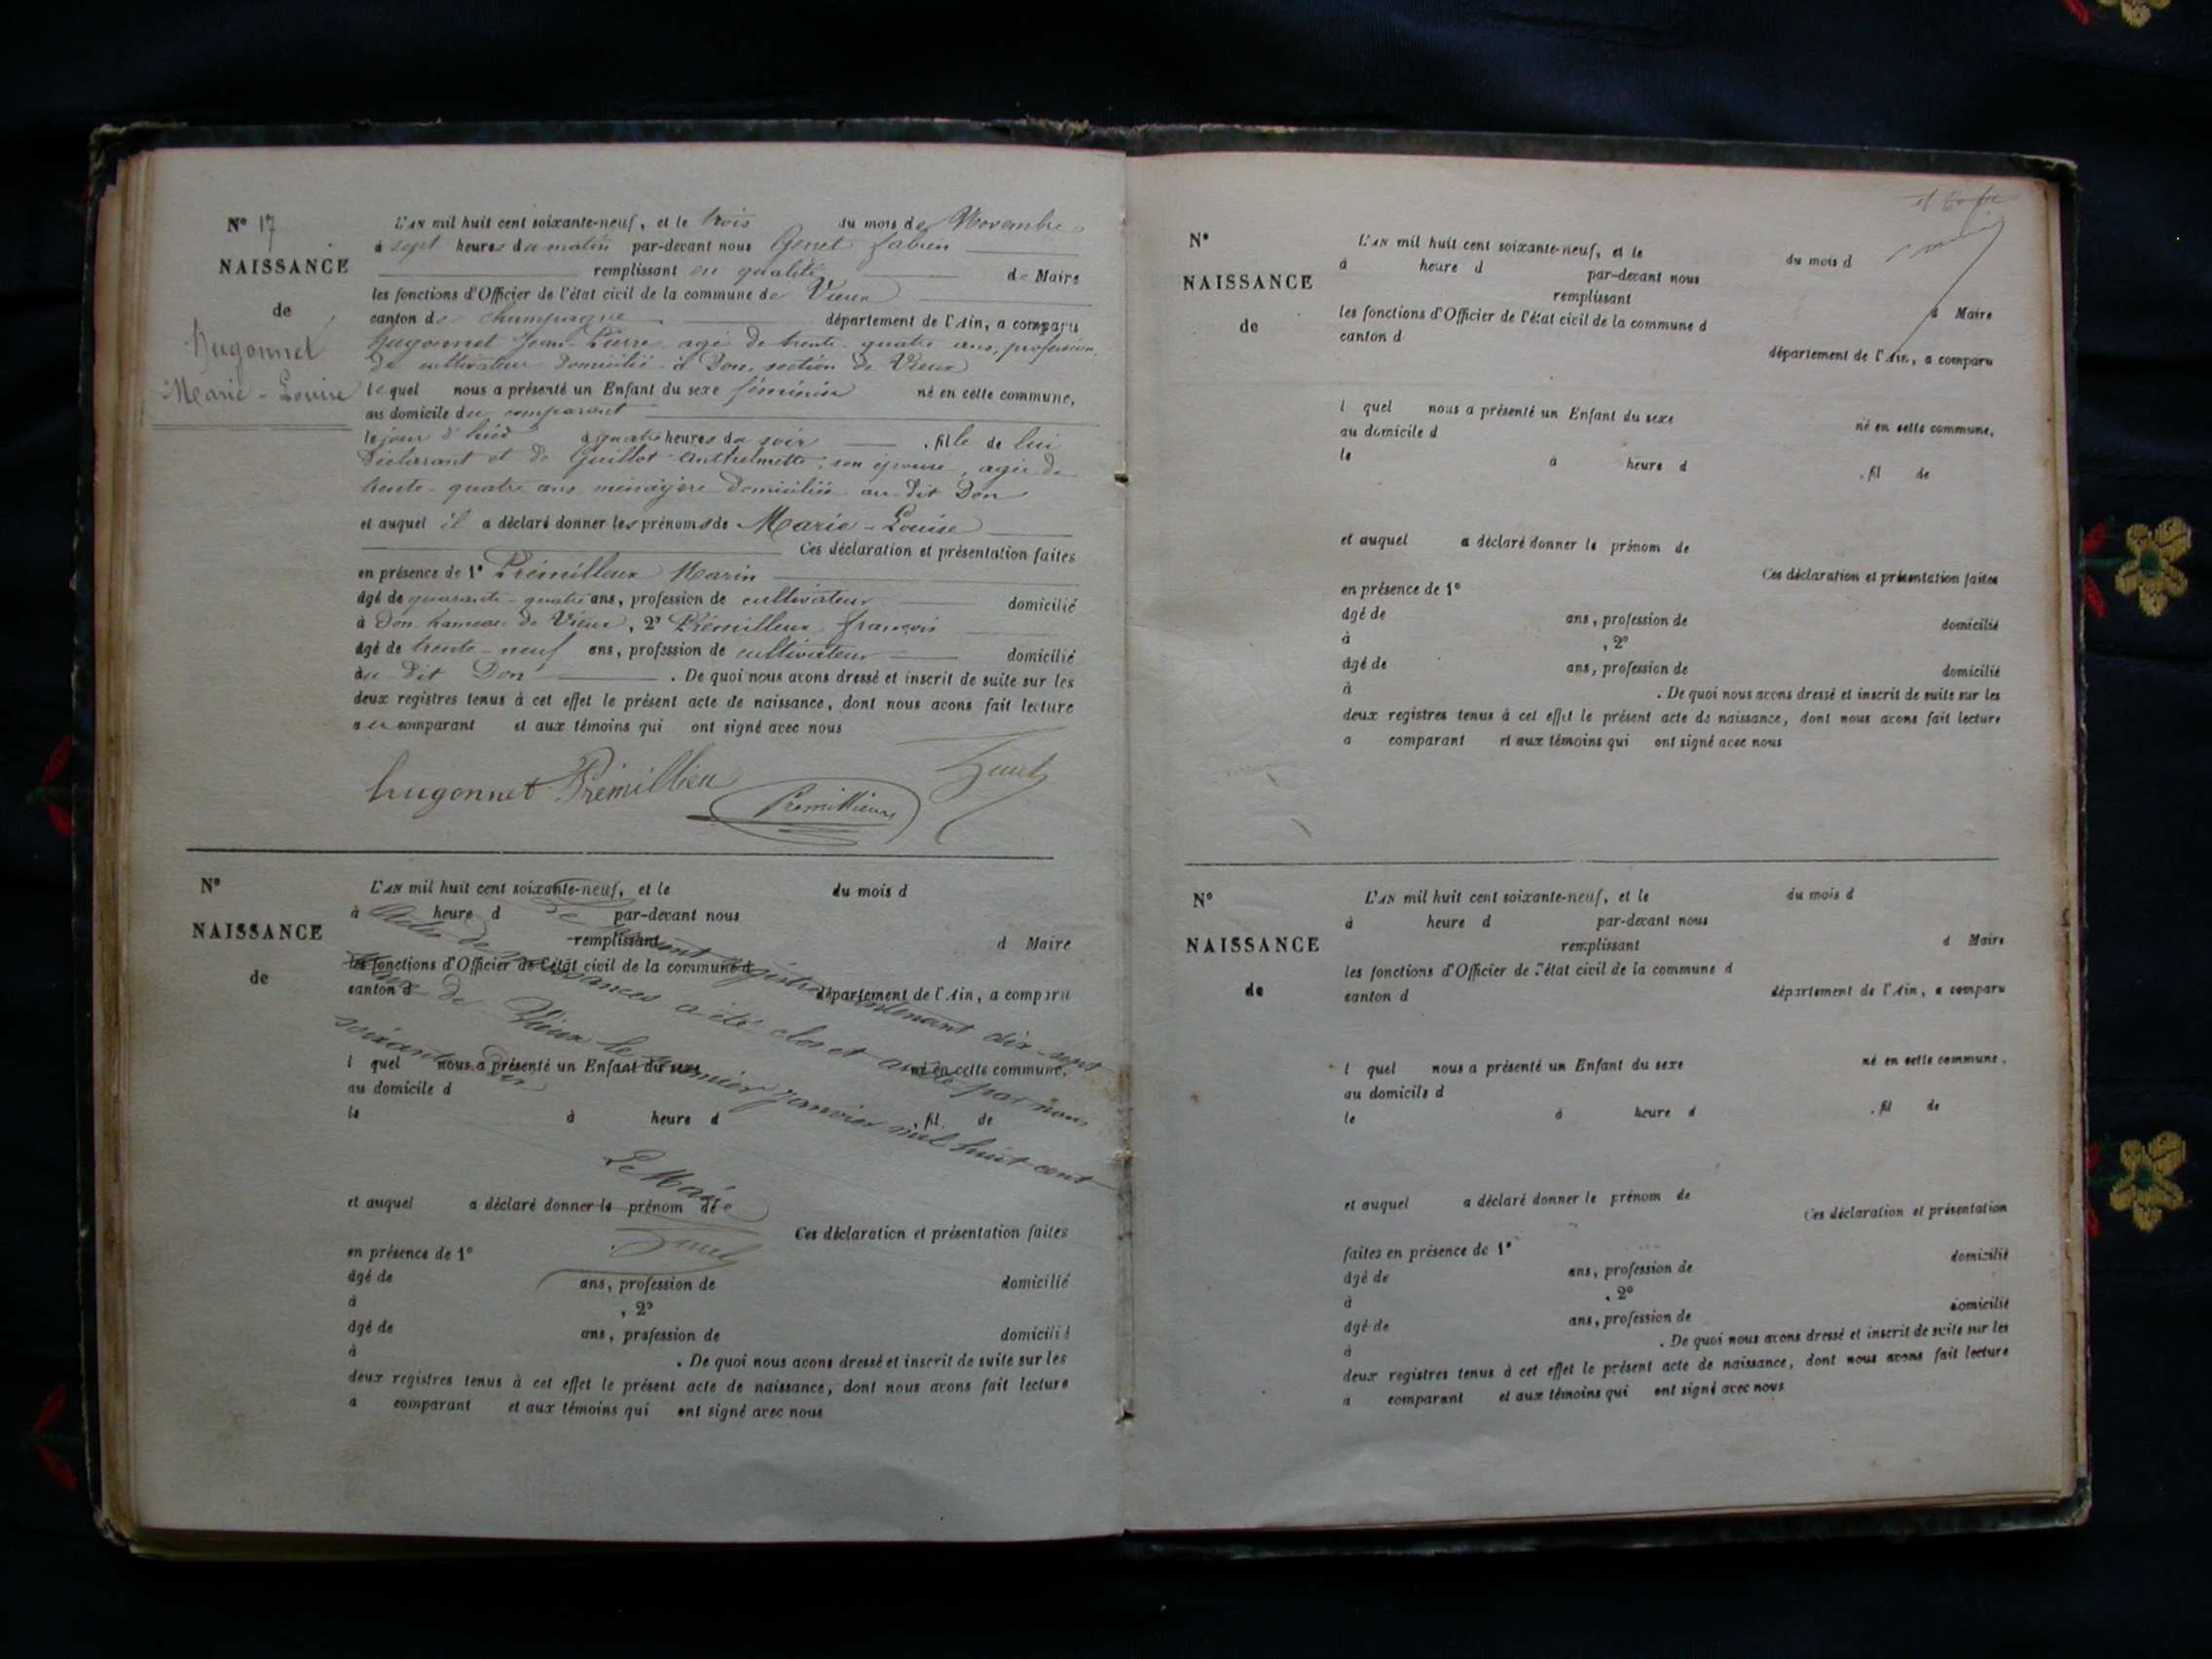 N° 17
NAISSANCE
de
Hugonnet
Marie-Louise
L'AN mil huit cent soixante-neuf, et le trois du mois de Novembre
à sept heures du matin par-devant nous Genet fabien
remplissant en qualité de Maire
les fonctions d'Officier de l'état civil de la commune de Vieux
canton de champagne département de l'Ain, a comparu
Hugonnet Jean-Pierre, agé de trente-quatre ans, profession
de cultivateur domicilié à Don, section de Vieux
lequel nous a présenté un Enfant du sexe féminin né en cette commune,
au domicile du comparant
le jour d'hier à quatre heures du soir, fille de lui
Déclarant et de Guillot Anthelmette, son épouse, agée de
trente-quatre ans ménagère domiciliée au dit Don
et auquel il a déclaré donner les prénoms de Marie-Louise
Ces déclaration et présentation faites
en présence de 1° Prémilleux Marin
âgé de quarante-quatre ans, profession de cultivateur domicilié
à Don hameau de Vieux, 2° Prémilleux françois
âgé de trente-neuf ans, profession de cultivateur domicilié
au dit Don. De quoi nous avons dressé et inscrit de suite sur les
deux registres tenus à cet effet le présent acte de naissance, dont nous avons fait lecture
au comparant et aux témoins qui ont signé avec nous
hugonnet Prémillieu
Premillieux
N°
NAISSANCE
de
L'AN mil huit cent soixante-neuf, et le du mois d
à heure d par-devant nous
remplissant d Maire
les fonctions d'Officier de l'état civil de la commune d
canton d département de l'Ain, a comparu
l quel nous a présenté un Enfant du sexe né en cette commune,
au domicile d
le à heure d , fil de
et auquel a déclaré donner le prénom de
Ces déclaration et présentation faites
en présence de 1°
âgé de ans, profession de domicilié
à , 2°
âgé de ans, profession de domicilié
à . De quoi nous avons dressé et inscrit de suite sur les
deux registres tenus à cet effet le présent acte de naissance, dont nous avons fait lecture
a comparant et aux témoins qui ont signé avec nous
Le présent registre contenant dix-sept
Actes de naissances a été clos et arrêté par nous
Maire de Vieux le premier Janvier mil huit cent
soixante-Dix
Le Maire
N°
NAISSANCE
de
L'AN mil huit cent soixante-neuf, et le du mois d
à heure d par-devant nous
remplissant d Maire
les fonctions d'Officier de l'état civil de la commune d
canton d département de l'Ain, a comparu
l quel nous a présenté un Enfant du sexe né en cette commune,
au domicile d
le à heure d , fil de
et auquel a déclaré donner le prénom de
Ces déclaration et présentation faites
en présence de 1°
âgé de ans, profession de domicilié
à , 2°
âgé de ans, profession de domicilié
à . De quoi nous avons dressé et inscrit de suite sur les
deux registres tenus à cet effet le présent acte de naissance, dont nous avons fait lecture
a comparant et aux témoins qui ont signé avec nous
N°
NAISSANCE
de
L'AN mil huit cent soixante-neuf, et le du mois d
à heure d par-devant nous
remplissant d Maire
les fonctions d'Officier de l'état civil de la commune d
canton d département de l'Ain, a comparu
l quel nous a présenté un Enfant du sexe né en cette commune,
au domicile d
le à heure d , fil de
et auquel a déclaré donner le prénom de
Ces déclaration et présentation
faites en présence de 1° domicilié
âgé de ans, profession de
à , 2° domicilié
âgé de ans, profession de
à . De quoi nous avons dressé et inscrit de suite sur les
deux registres tenus à cet effet le présent acte de naissance, dont nous avons fait lecture
a comparant et aux témoins qui ont signé avec nous